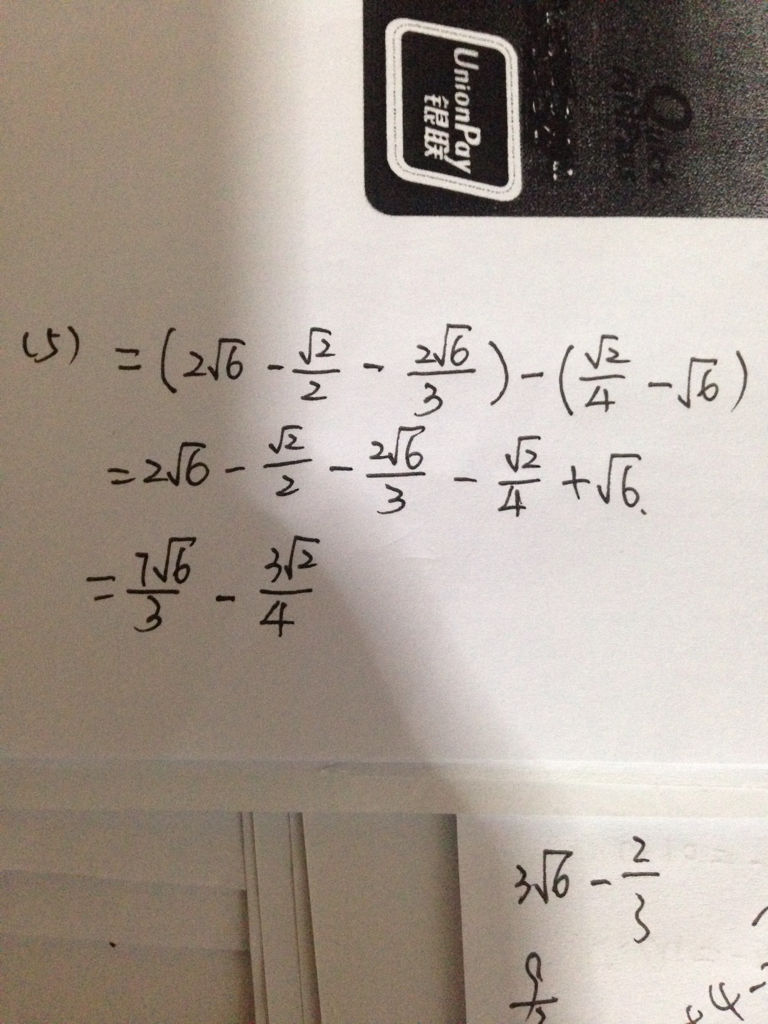 UnionPay
银联
Quick
(5) =(2√6 - √2/2 - 2√6/3) - (√2/4 - √6)
=2√6 - √2/2 - 2√6/3 - √2/4 + √6.
= 7√6/3 - 3√2/4
3√6 - 2/3